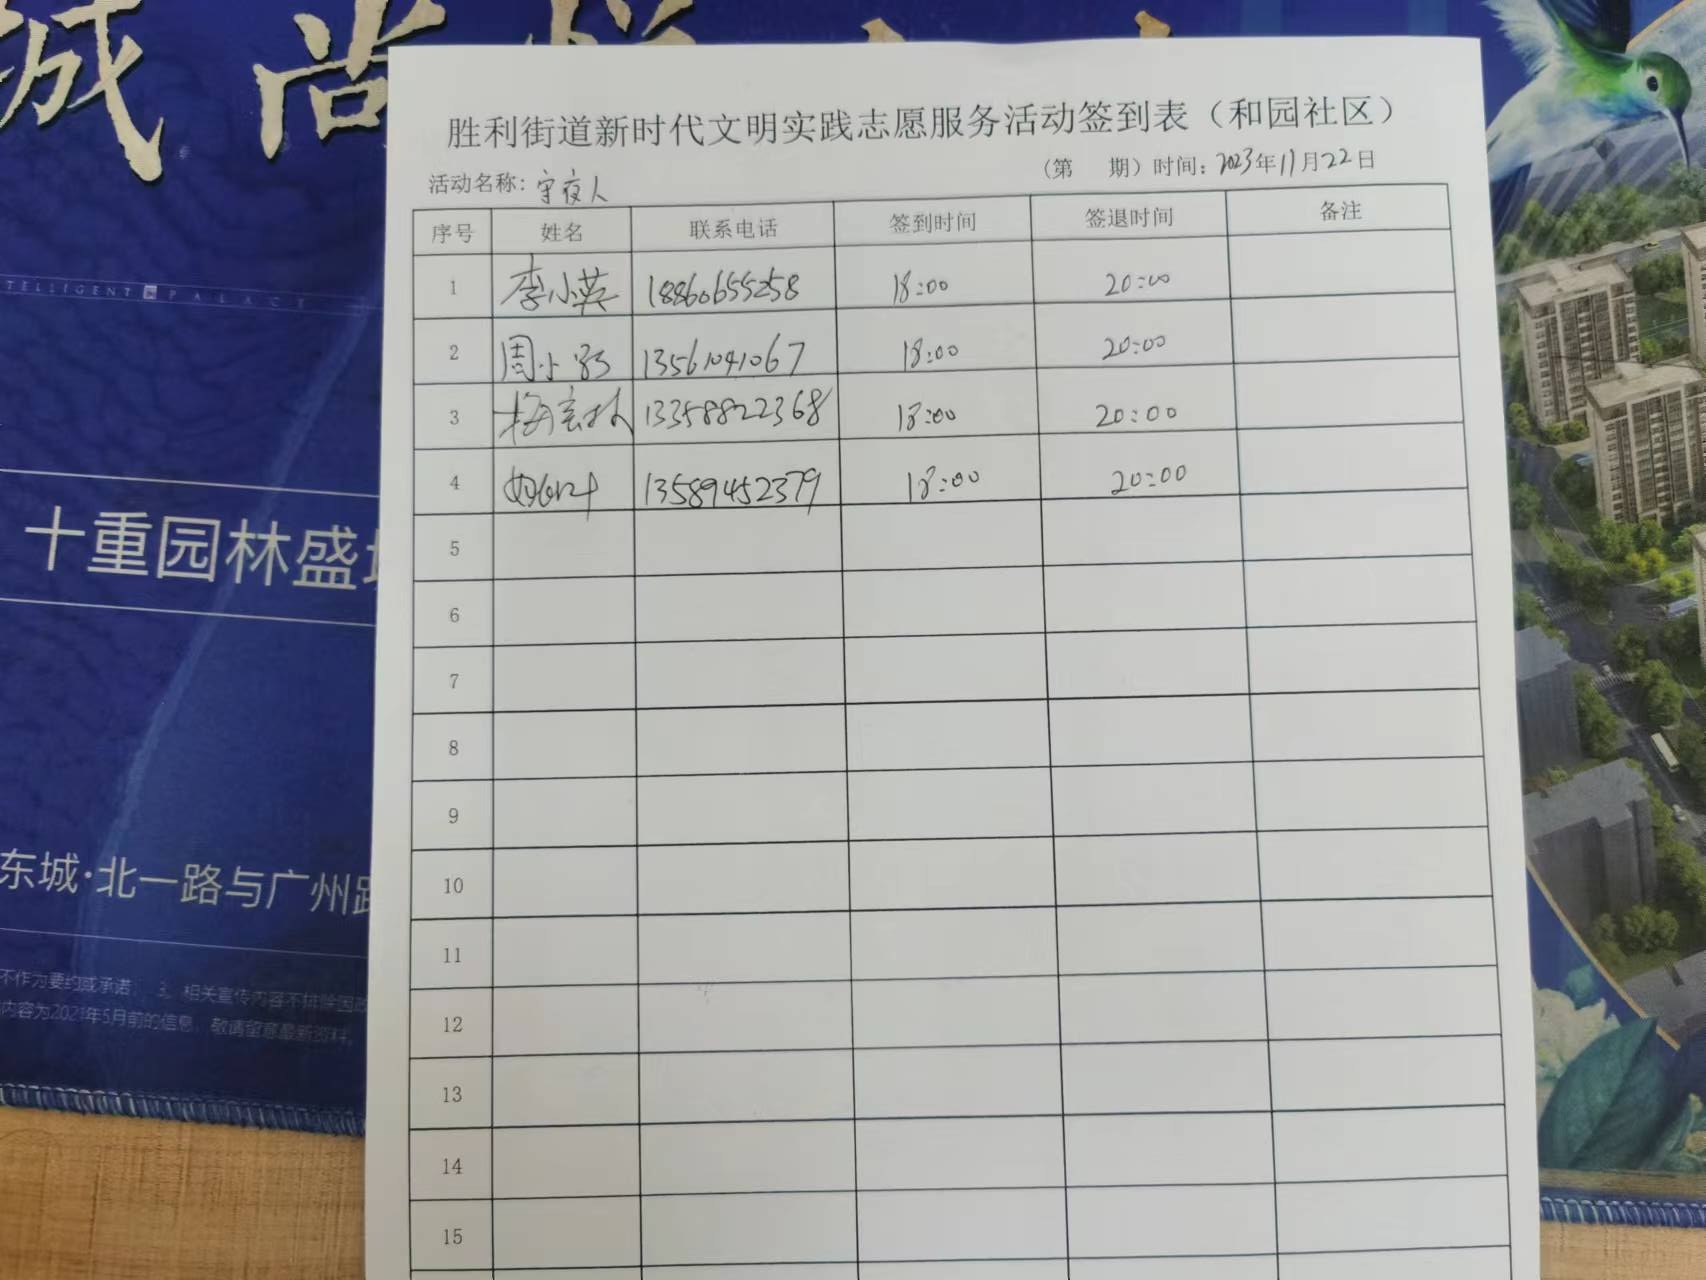 城 尚悦
胜利街道新时代文明实践志愿服务活动签到表（和园社区）
活动名称：守夜人 （第 期）时间：2023年11月22日
序号 姓名 联系电话 签到时间 签退时间 备注
1 李小英 18860655258 18:00 20:00
2 周小 13561041067 18:00 20:00
3 梅 林 13358822368 18:00 20:00
4 13589452379 18:00 20:00
5
6
7
8
9
10
11
12
13
14
15
TELLIGENT PALACE
十重园林盛
东城·北一路与广州路
不作为要约或承诺； 3、相关宣传内容不排除因政
内容为2021年5月前的信息，敬请留意最新资料。